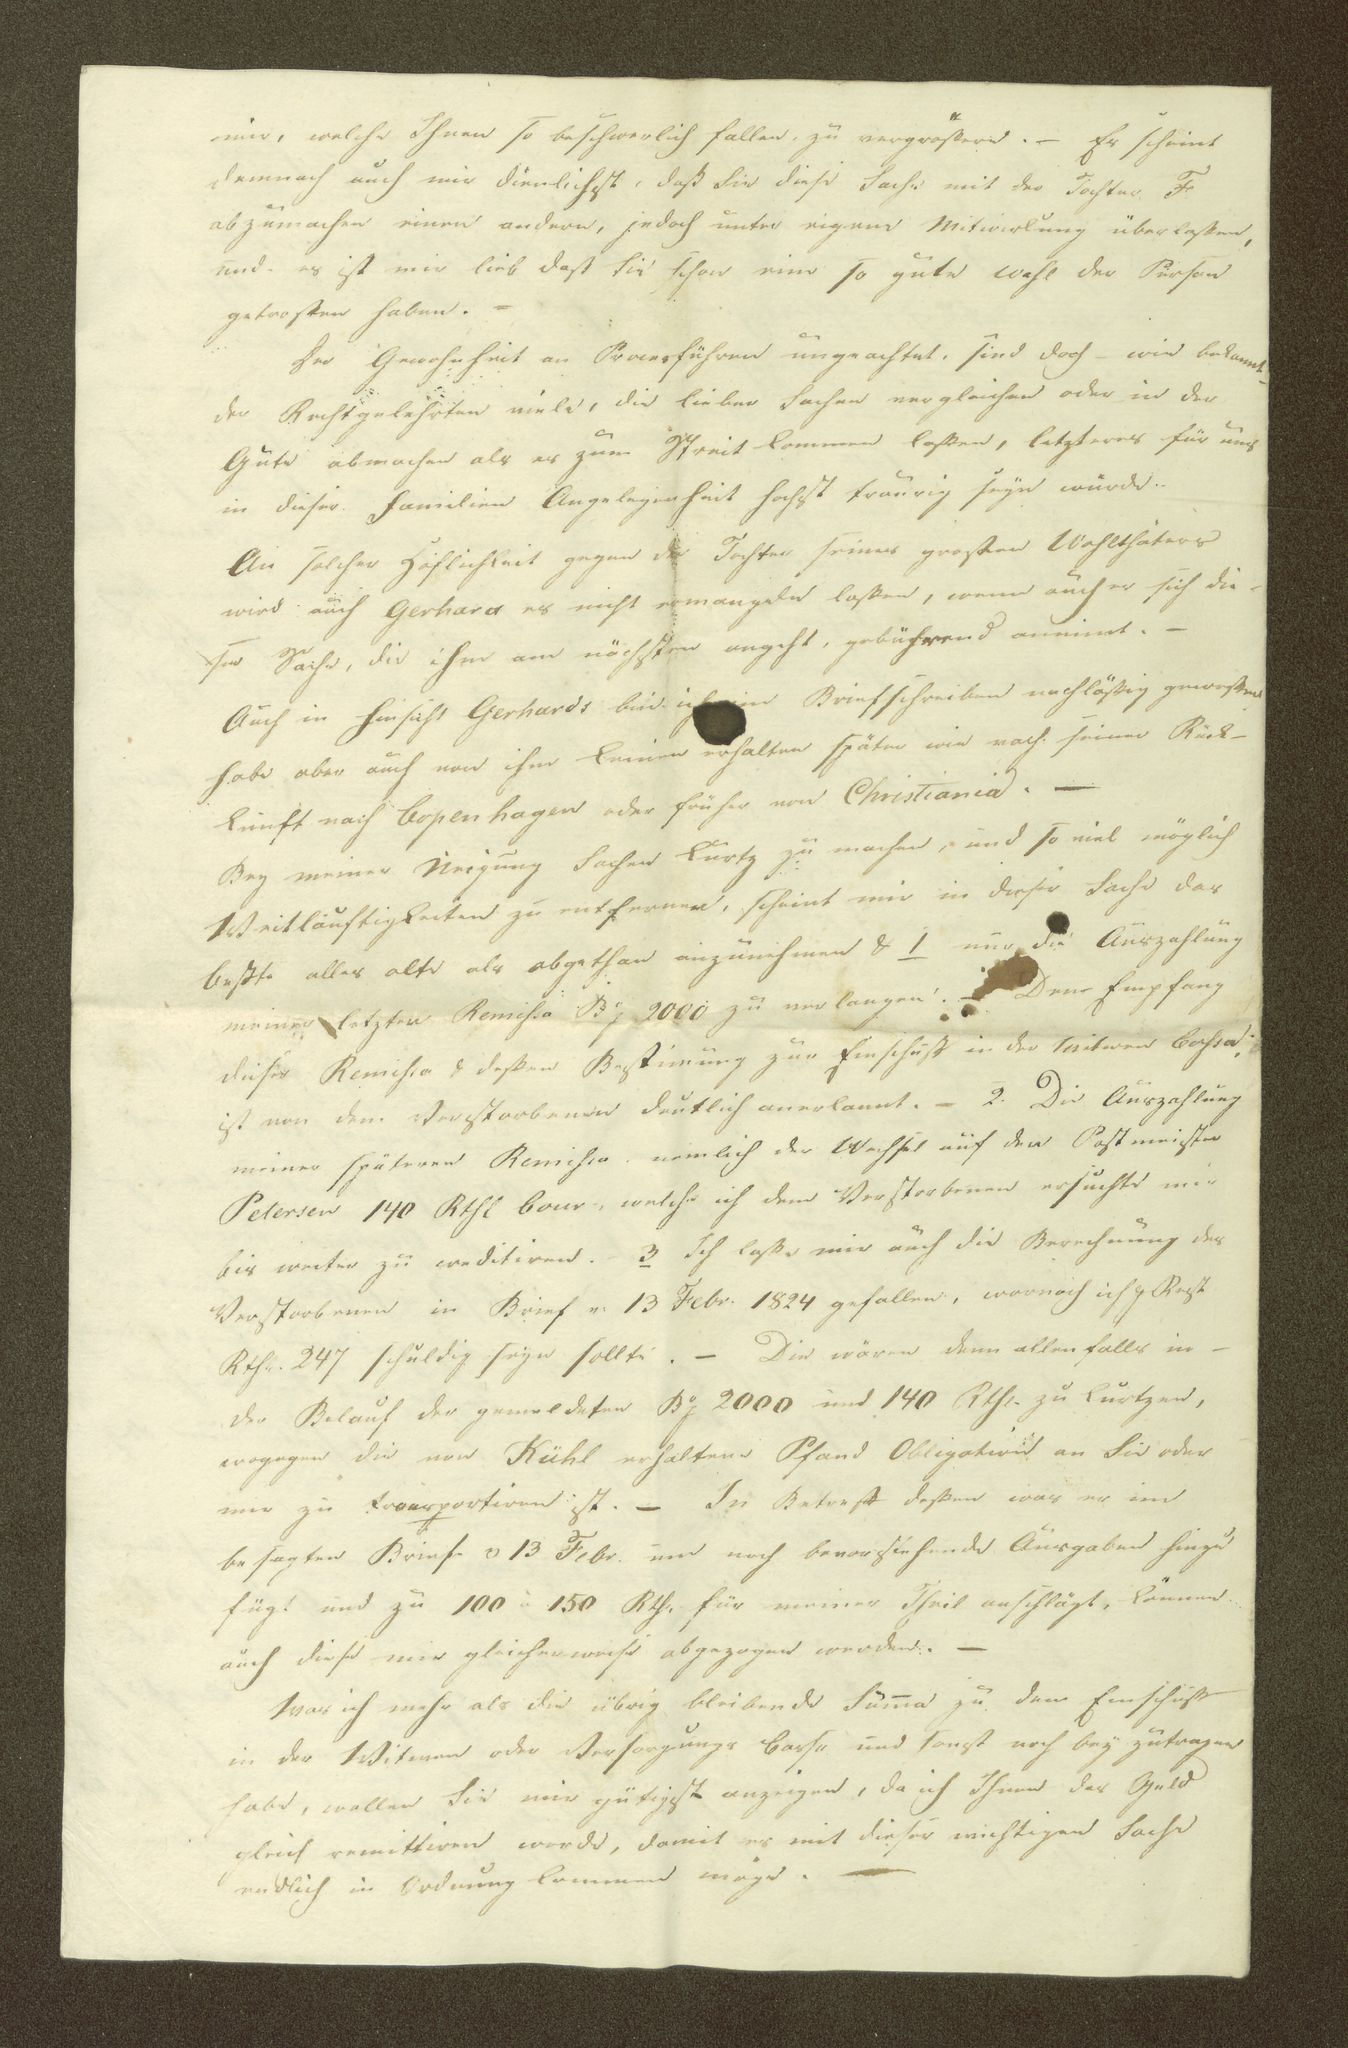 mir, welche Ihnen so beschwerlich fallen, zu vergrößern. – Es scheint
demnach auch mir dienlichst, daß Sie diese Sache mit der Tochter F.
abzumachen einen andern, jedoch unter eigene Mitwirkung überlaßen,
und es ist mir lieb daß Sie schon eine so gute Wahl der Person
getroffen haben. –
Der Gewohnheit an Procesführen ungeachtet, sind doch – wie bekannt –
der Rechtgelehrten viele, die lieber Sachen vergleichen oder in der
Güte abmachen als es zum Streit kommen laßen, letzteres für uns
in dieser Familien Angelegenheit höchst traurig seyn würde.
An solcher Höflichkeit gegen die Tochter seines großen Wohlthäters
wird auch Gerhard es nicht ermangeln laßen, wenn auch er sich die-
ser Sache, die ihm am nächsten angeht, gebührend annimt. –
Auch in Hinsicht Gerhards bin ich im Briefschreiben nachläßig gewesen
habe aber auch von ihm keinen erhalten später wie nach seiner Rück-
kunft nach Copenhagen oder früher von Christiania. –
Bey meiner Neigung Sachen kurtz zu machen, und so viel möglich
Weitläuftigkeiten zu entfernen, scheint mir in dieser Sache das
beßte alles alte als abgethan anzunehmen & 1 nur die Auszahlung
meiner letzten Remisse 2000 zu verlangen. – Den Empfang
dieser Remissa & deßen Bestimung zur Einschuß in der Witwen Cassa,
ist von dem Verstorbenen deutlich anerkannt. – 2. Die Auszahlung
meiner späteren Remissa nemlich der Wechsel auf den Postmeister
Petersen 140 Rthl Cour, welche ich dem Verstorbenen ersuchte mir
bis weiter zu creditiren. 3 Ich laße mir auch die Berechnung des
Verstorbenen in Brief v. 13 Febr. 1824 gefallen, wornach ich p Rest
Rthr. 247 schuldig seyn sollte. – Die wären denn allenfalls in –
der Belauf der gemeldeten 2000 und 140 Rthr zu kurtzen,
wogegen die von Kühl erhaltene Pfand Obligation an Sie oder
mir zu transportiren ist. – In Betreff deßen was er im
besagten Brief v 13 Febr. um noch bevorstehende Ausgaben hinzu
fügt und zu 100 à 150 Rth. für meiner Theil anschlägt, können
auch diese mir gleicherweise abgezogen werden. –
Was ich mehr als die übrig bleibende Suma zu dem Einschuß
in der Witwen oder Versorgungs Casse und sonst noch bey zutragen
habe, wollen Sie mir gütigst anzeigen, da ich Ihnen das Geld
gleich remittiren werde, damit es mit dieser wichtigen Sache
endlich in Ordnung kommen möge. –